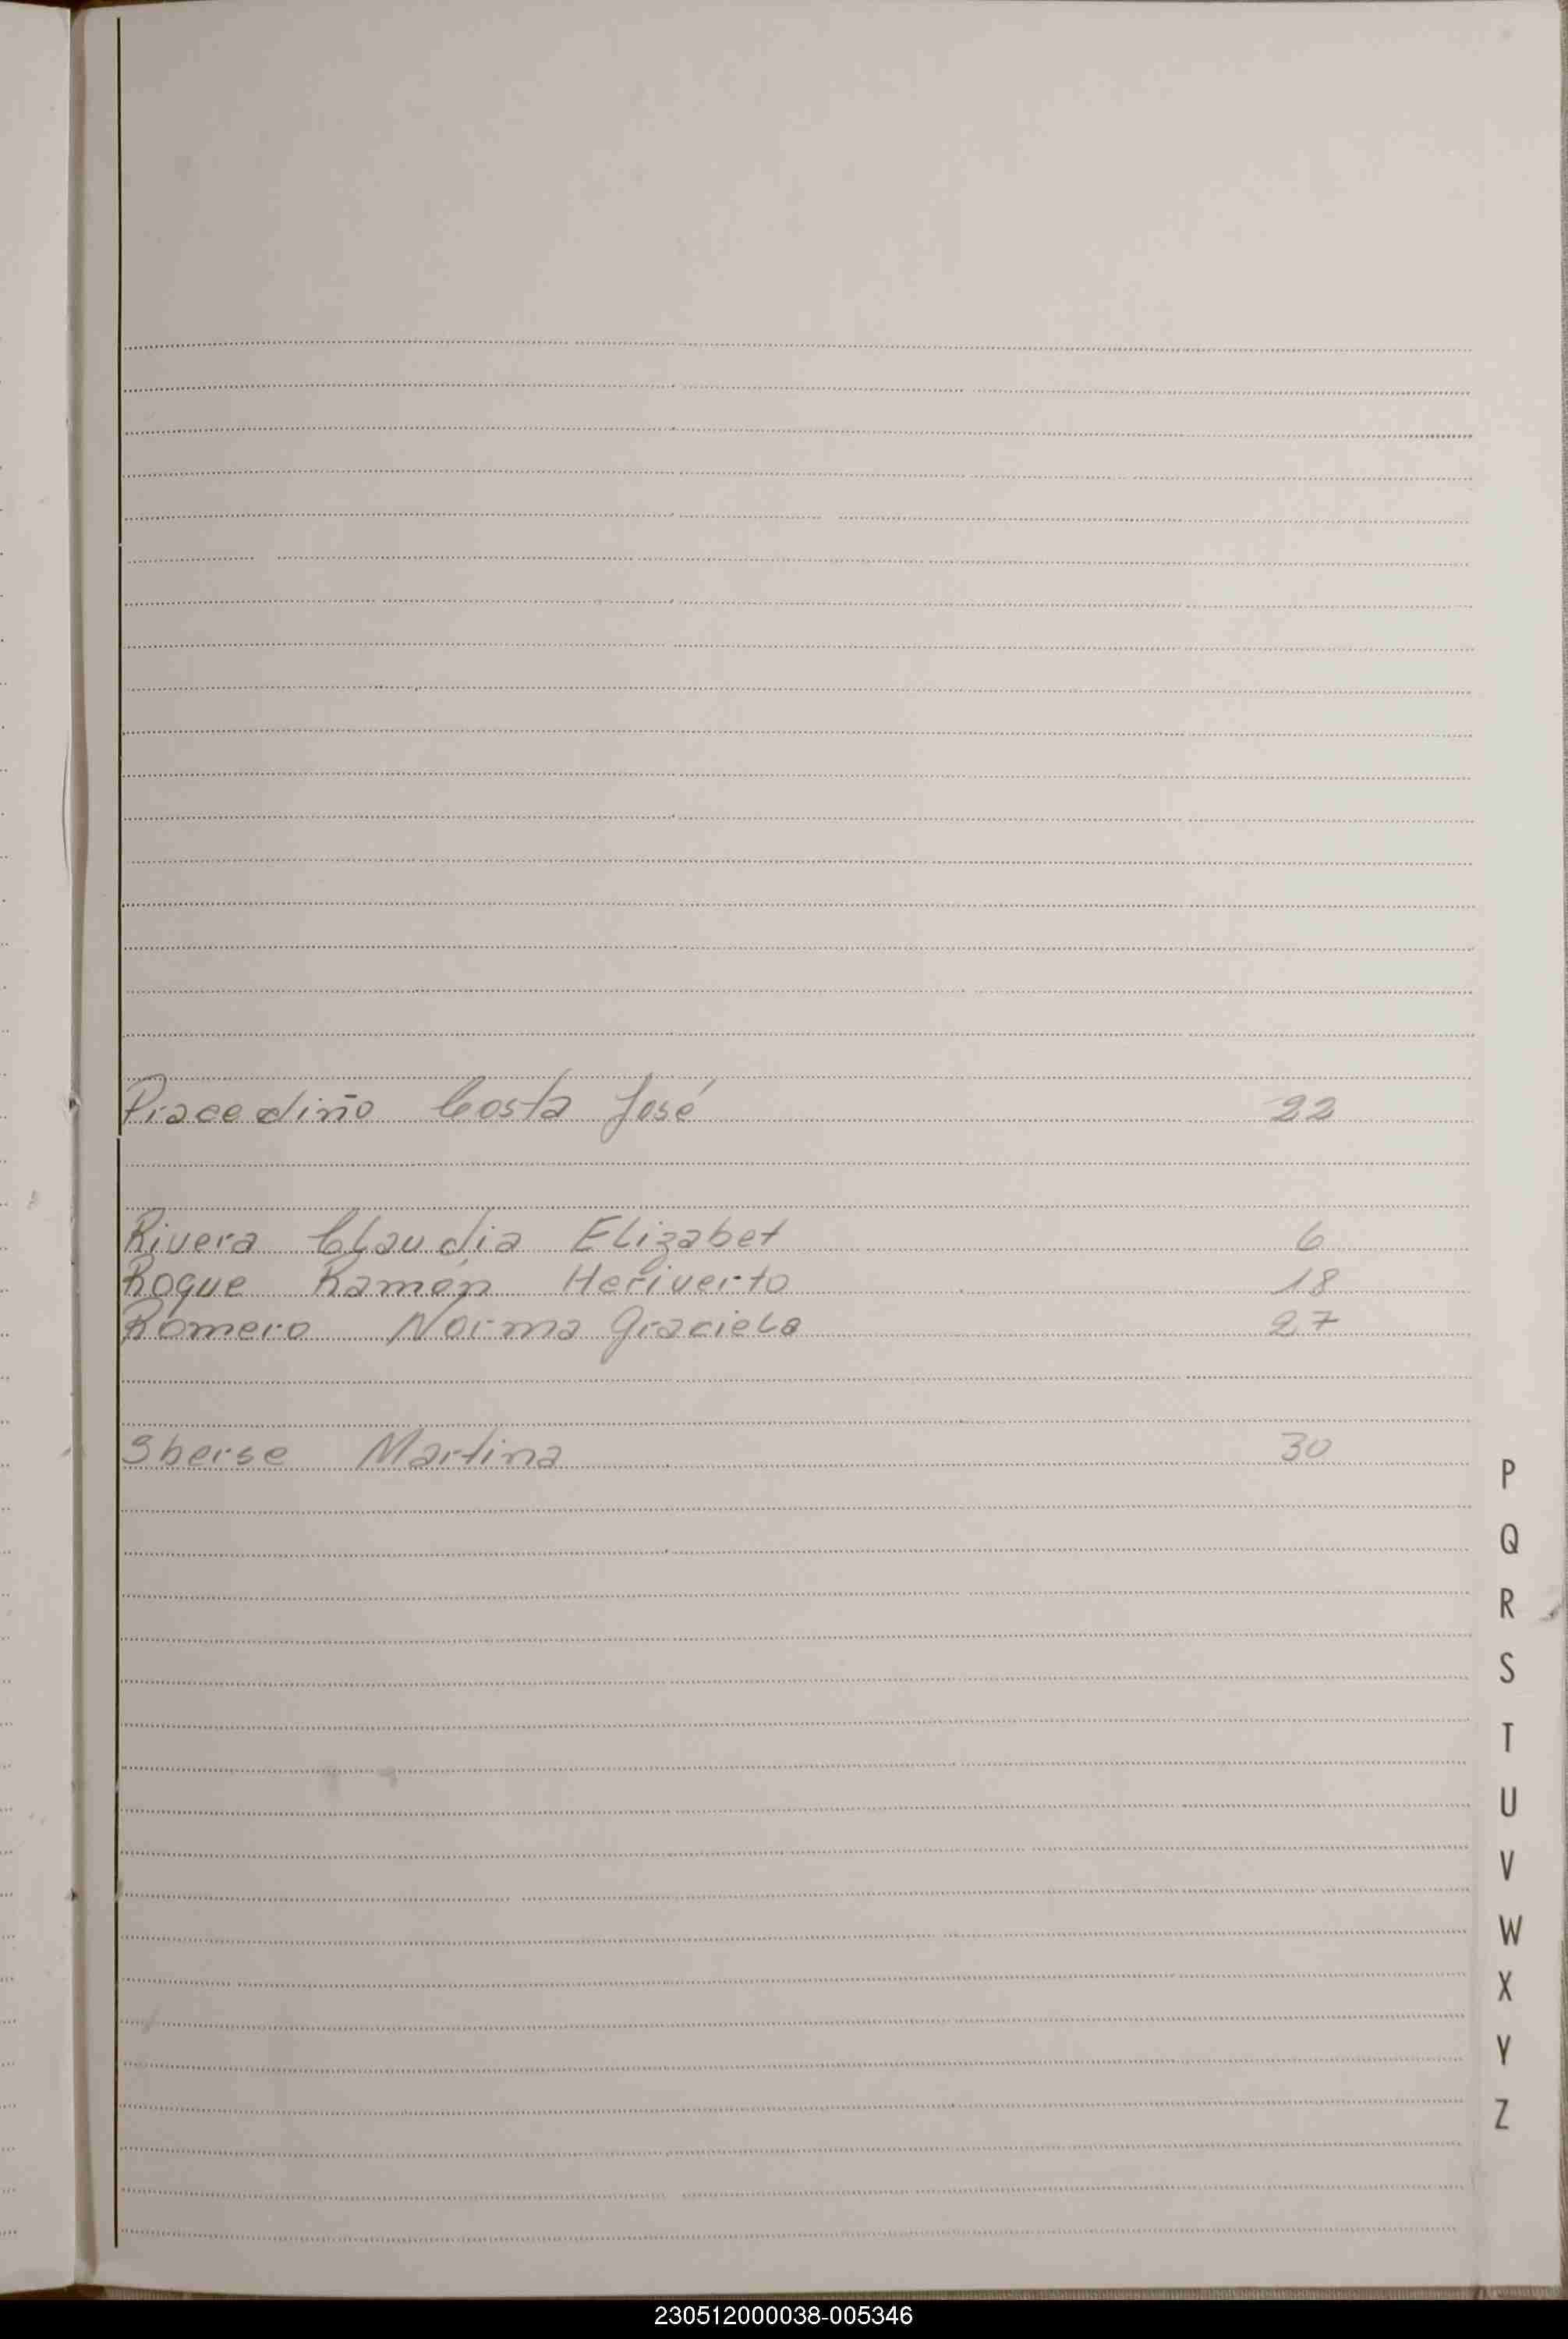 Piacediño Costa José 22
Rivera Claudia Elizabet 6
Roque Ramón Heriverto 18
Romero Norma Graciela 27
Sberse Martina 30
P
Q
R
S
T
U
V
W
X
Y
Z
230512000038-005346